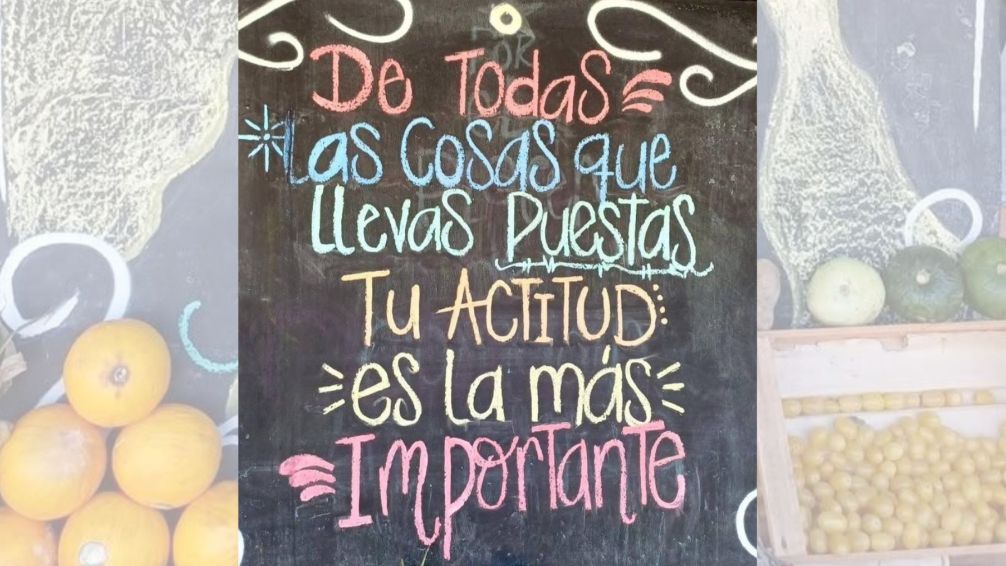 De Todas
Las Cosas que
Llevas Puestas
Tu ACTITUD
es la más
Importante